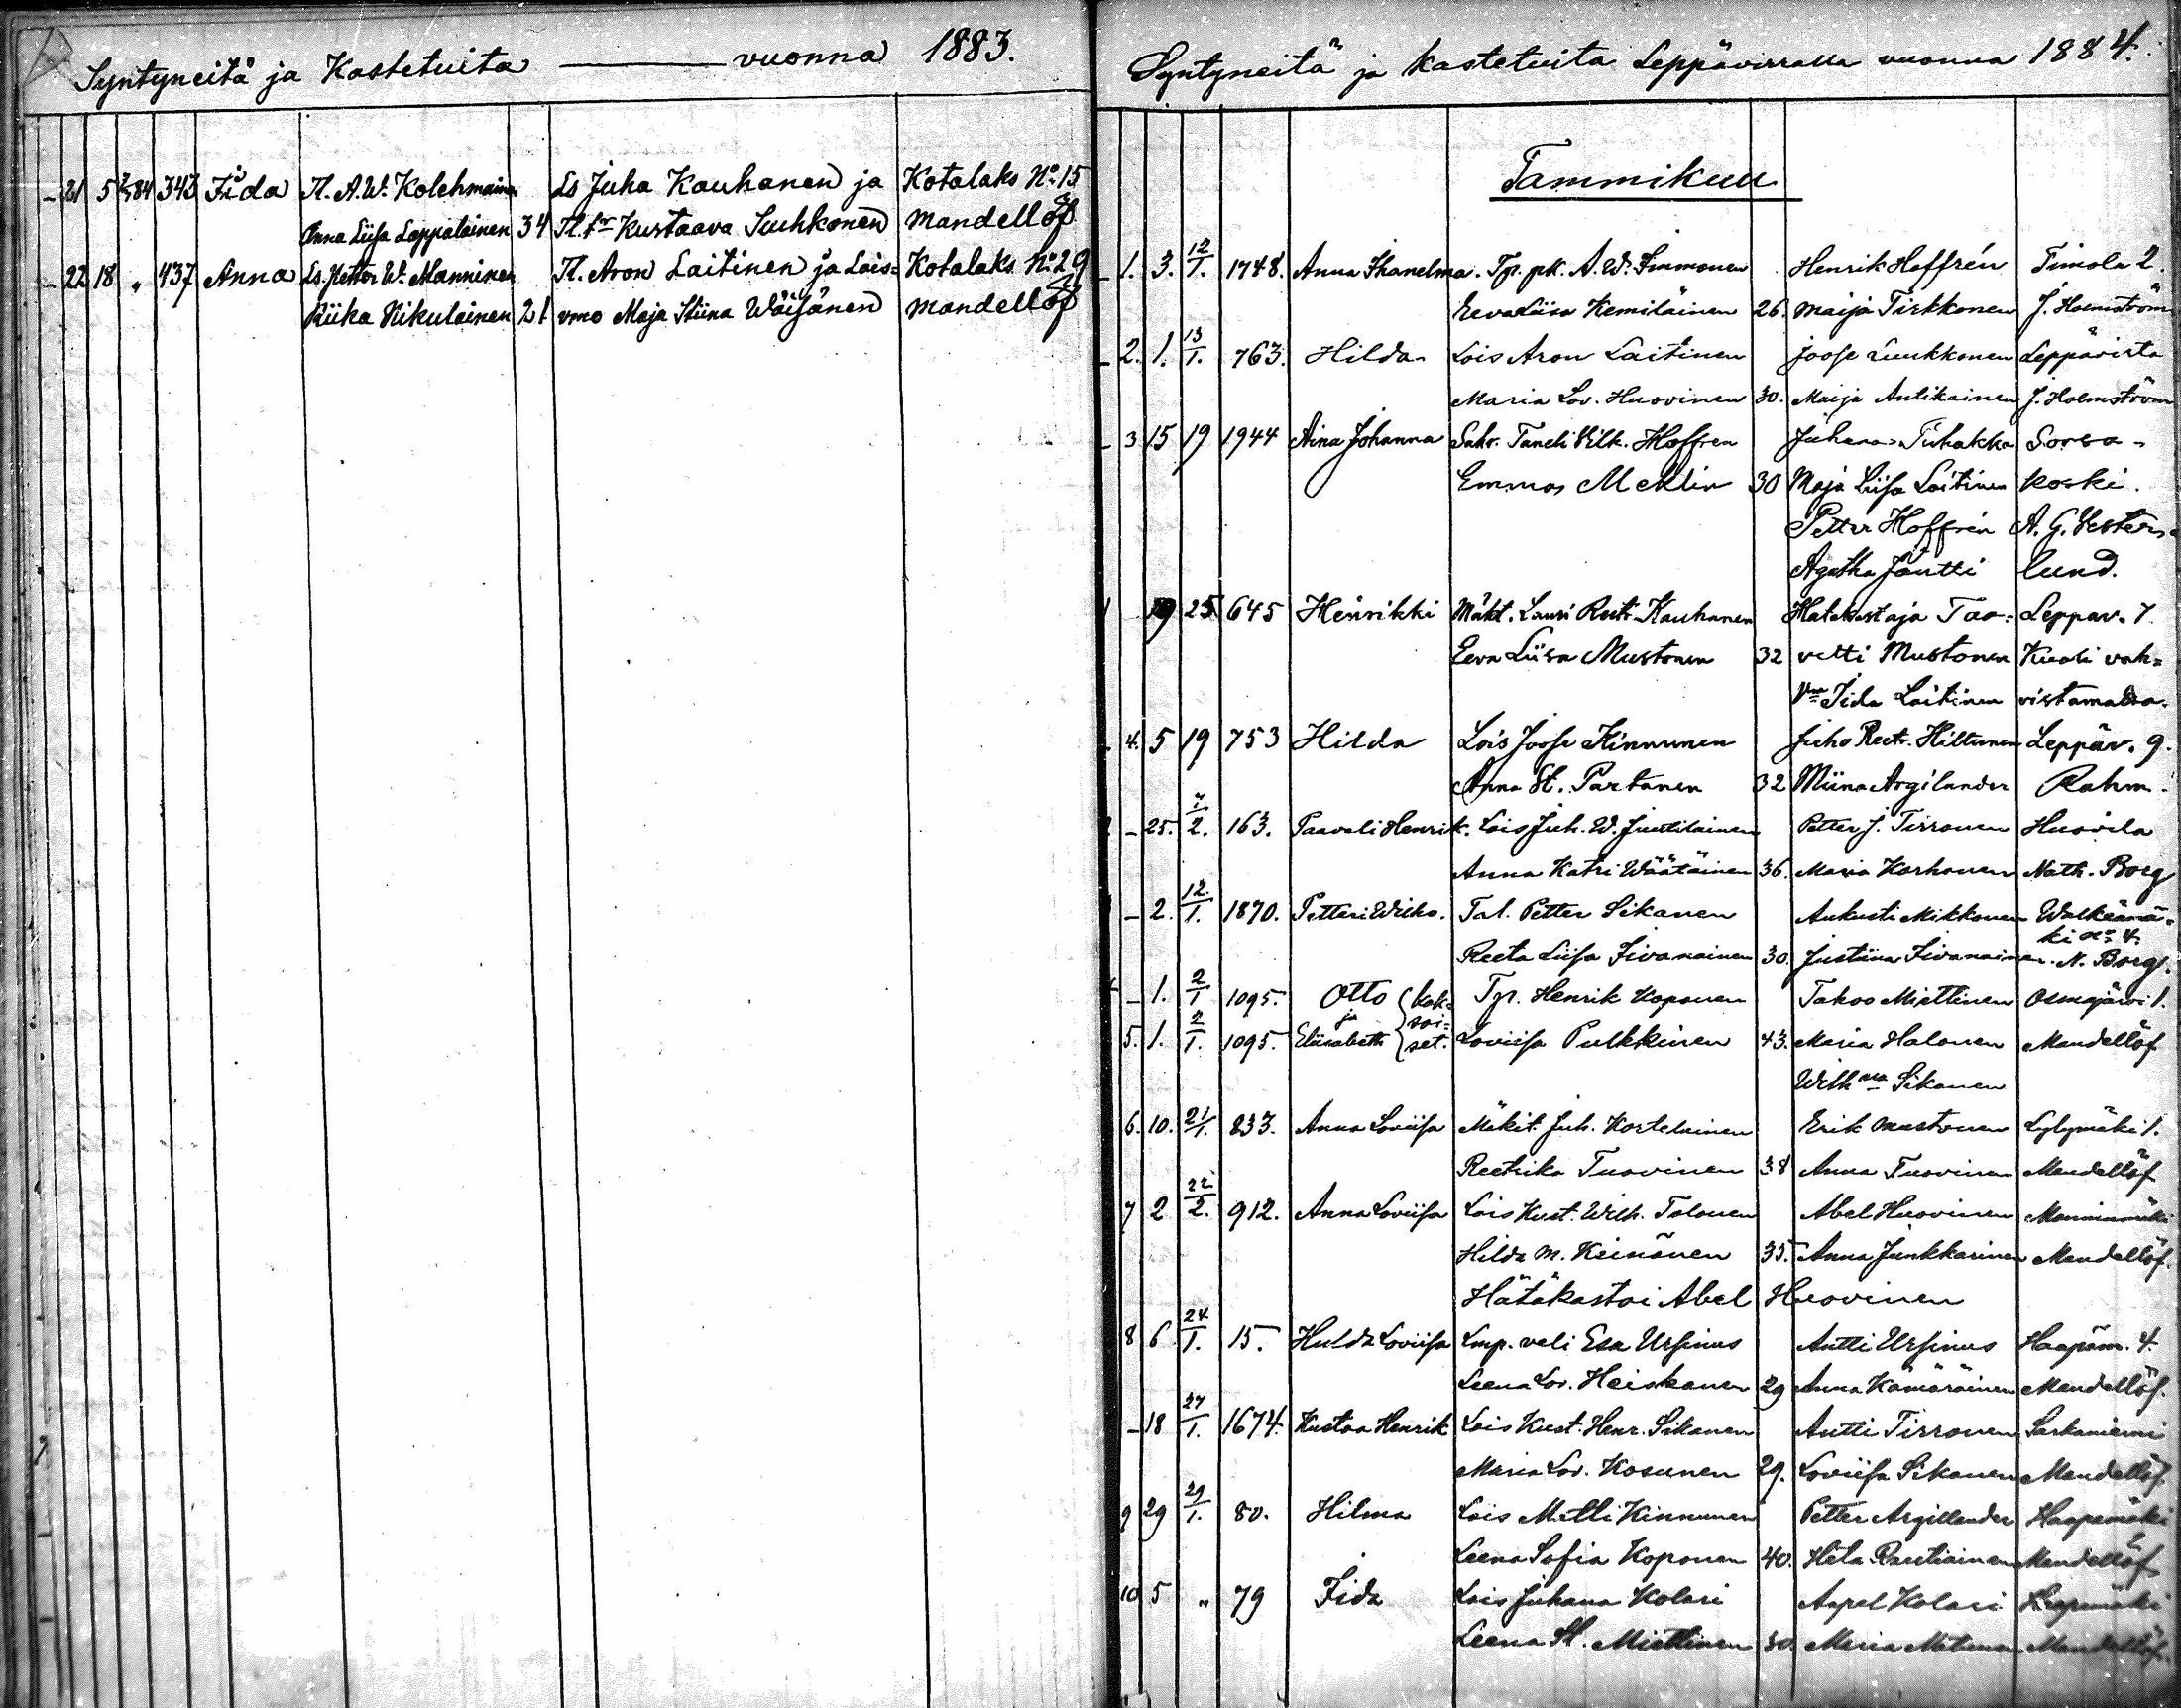 Syntyneitä ja Kastetuita vuonna 1883.
- 21 5 2/1 84 343 Iida Tl. A. W. Kolehmainen Ls Juha Kauhanen ja Kotalaks No 15
Anna Liisa Lappalainen 34 Tl. tr Kustaava Suhkonen Mandellöf
- 22 18 " 437 Anna Ls. Petter W. Manninen Tl. Aron Laitinen ja Lois= Kotalaks No 29
Riika Nikulainen 21 vmo Maja Stiina Wäisänen Mandellöf
Syntyneitä ja kastetuita Leppävirralla vuonna 1884.
Tammikuu
- 1. 3. 12/1. 1748. Anna Ihanelma. Tp. pk. A. W. Simmonen Henrik Hoffrén Timola 2.
Eeva Liisa Kemiläinen 26. Maija Tirkkonen J. Holmström
- 2. 1. 13/1. 763. Hilda Lois Aron Laitinen Joose Luukkonen Leppävirta
Maria Lov. Huovinen 30. Maija Antikainen J. Holmström
- 3 15 19 1944 Aina Johanna Sahr. Taneli Vilh. Hoffren Juhana Tiihakka Sorsa-
Emma Meklin 30 Maja Liisa Laitinen koski.
Petter Hoffrén A. G. Vester-
Agatha Jäntti lund.
19 25 645 Heinrikki Mäkt. Lauri Reett. Kauhanen Hätäkastaja Taa= Leppäv. 7
Eeva Liisa Mustonen 32 vetti Mustonen Kuoli vah=
Vmo Iida Laitinen vistamatta.
- 4. 5 19 753 Hilda Lois Joose Kinnunen Juho Reet. Hiltunen Leppäv. 9.
Anna St. Partanen 32 Miina Argilander Rahm.
- 25. 7/2. 163. Paavali Henrik. Lois Juh. W. Juutilainen Petter J. Tirronen Huovila
Anna Katri Wäätäinen 36. Maria Korhonen Nath. Borg
- 2. 12/1. 1870. Petteri Wilho. Tal. Petter Sikanen Aukusti Mikkonen Walkeamä=
ki No 4.
Reeta Liisa Iivanainen 30. Justiina Iivanainen. N. Borg.
- 1. 2/1 1095. Otto (kak= Tp. Henrik Koponen Takoo Miettinen Osmajärvi 1.
ja soi=
5. 1. 2/1. 1095. Eliisabeth set. Loviisa Pulkkinen 43. Maria Halonen Mandellöf
Wilhna Sikanen
6. 10. 21/1. 233. Anna Loviisa Mäkit. Juh. Kortelainen Erik Mustonen Lylymäki 1.
Reetrika Tuovinen 38 Anna Tuovinen Mandellöf
7 2 22/2. 912. Anna Loviisa Lois Kust. Wilh. Tolonen Abel Huovinen Manninmäki
Hilda M. Keinänen 35. Anna Junkkarinen Mandellöf.
Hätäkastoi Abel Huovinen
8 6 24/1. 15. Hulda Loviisa Lmp. veli Esa Ursinus Antti Ursinus Haapam. 4.
Leena Lov. Heiskanen 29 Anna Kämäräinen Mandellöf.
- 18 27/1. 1674. Kustaa Henrik Lois Kust. Henr. Sikanen Antti Tirronen Sarkaniemi
Maria Lov. Kosunen 29. Loviisa Sikanen Mandellöf.
9 29 29/1. 80. Hilma Lois Matti Kinnunen Petter Argillander Haapamäki
Leena Sofia Koponen 40. Heta Rautiainen Mandellöf
10 5 " 79 Iida Lois Juhana Kolari Aapel Kolari Haapamäki
Leena St. Miettinen 30 Maria Matinen Mandellöf.